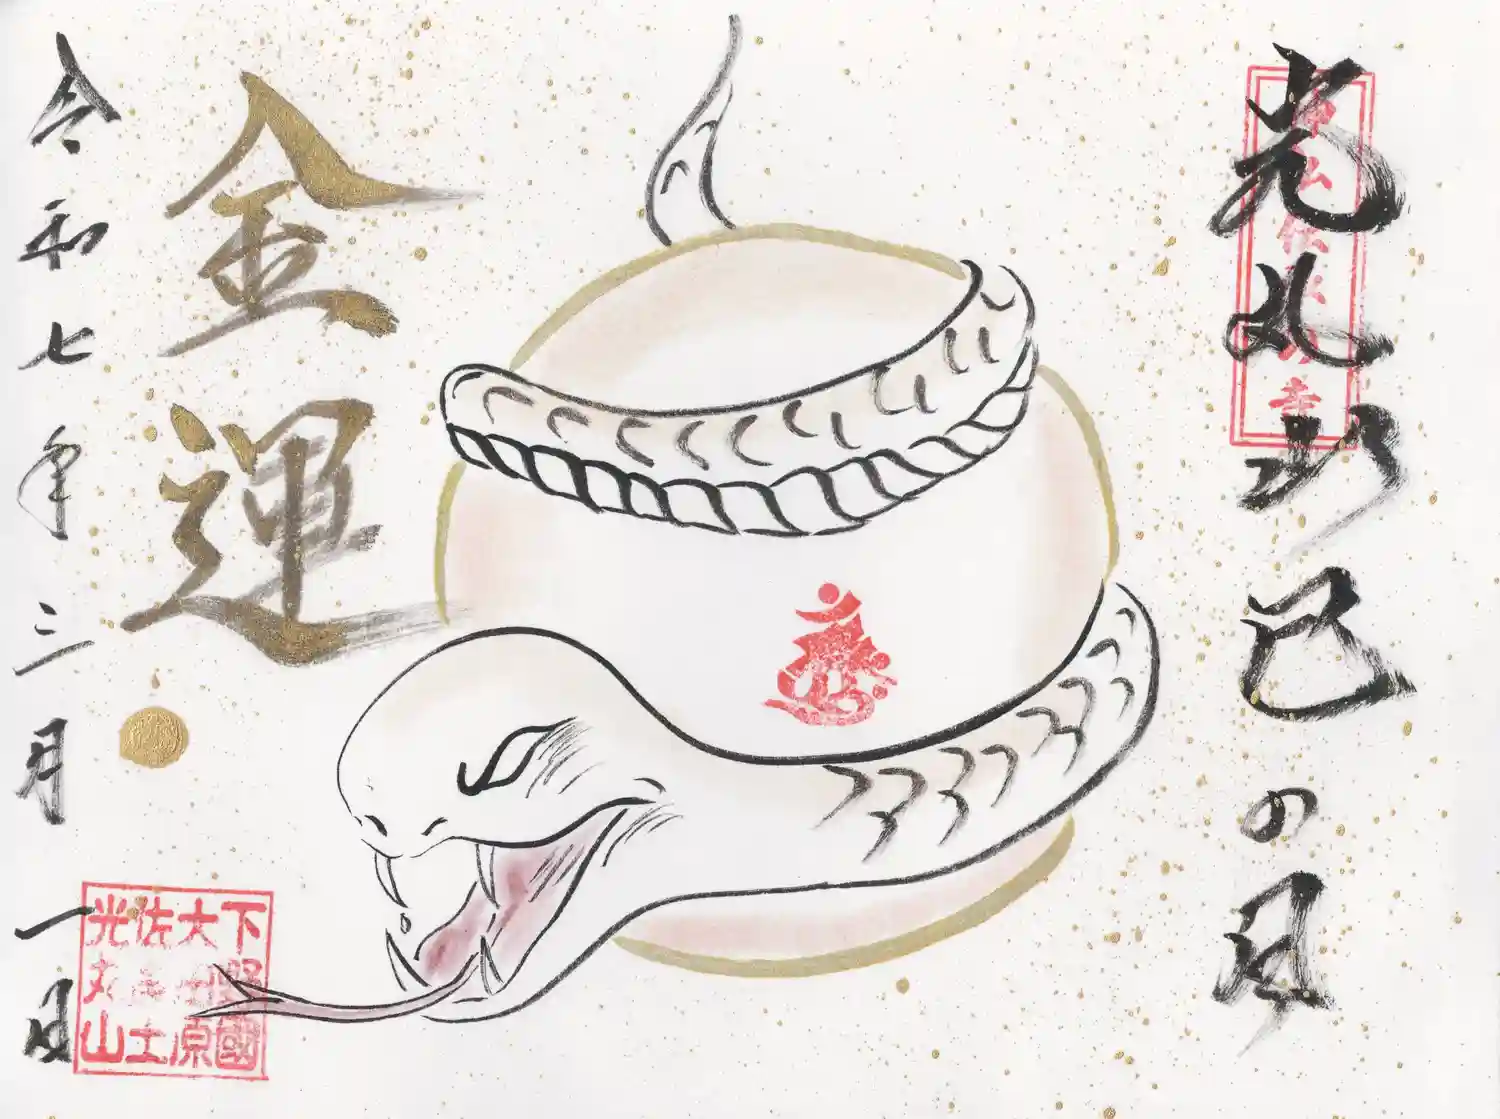 光丸山 巳の日
金運
令和七年三月一日
下野國
大田原
佐良土
光丸山